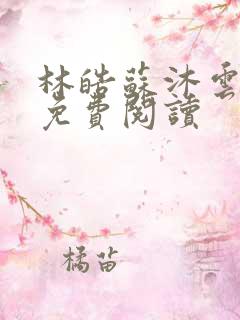 林皓蘇沐雲
免費閱讀
橘苗